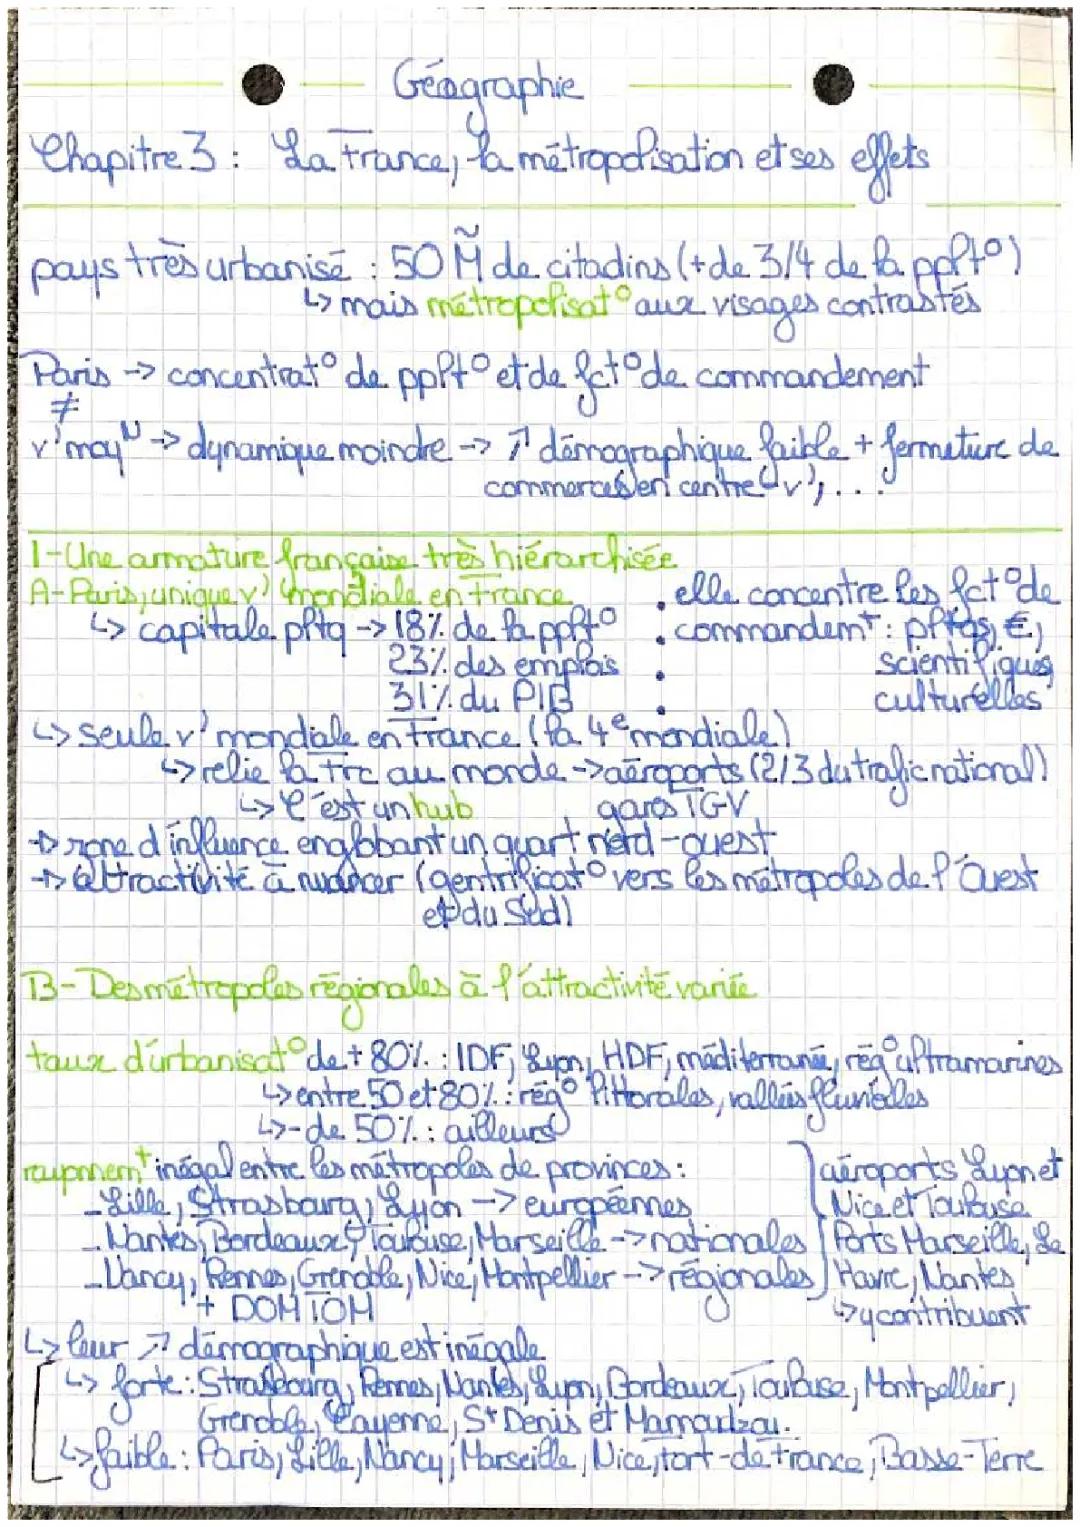 Géographie
Chapitre 3 : La France, la métropolisation et ses effets
pays très urbanisé : 50 M de citadins (+ de 3/4 de la pplt°)
↳ mais métropolisat° aux visages contrastés
Paris → concentrat° de pplt° et de fct° de commandement
≠
v' moyN → dynamique moindre → ↗ démographique faible + fermeture de
commerces en centre v', ...
I - Une armature française très hiérarchisée
A - Paris, unique v' mondiale en France
↳ capitale pltq → 18% de la pplt°
23% des emplois
31% du PIB
• elle concentre les fct° de
• commandemt : pltqs, €,
• scientifiques
• culturelles
↳ seule v' mondiale en France (la 4e mondiale)
↳ relie la Frc au monde → aéroports (2/3 du trafic national)
↳ C'est un hub gares TGV
→ zone d'influence englobant un quart nord-ouest
→ attractivité à nuancer (gentrificat° vers les métropoles de l'Ouest
et du Sud)
B - Des métropoles régionales à l'attractivité variée
taux d'urbanisat° de + 80% : IDF, Lyon, HDF, méditerranée, rég° ultramarines
↳ entre 50 et 80% : rég° littorales, vallées fluviales
↳ - de 50% : ailleurs
rayonnemt inégal entre les métropoles de provinces :
- Lille, Strasbourg, Lyon → européennes
- Nantes, Bordeaux, Toulouse, Marseille → nationales
- Nancy, Rennes, Grenoble, Nice, Montpellier → régionales
+ DOM TOM
aéroports Lyon et
Nice et Toulouse
Ports Marseille, Le
Havre, Nantes
↳ y contribuent
↳ leur ↗ démographique est inégale
↳ forte : Strasbourg, Rennes, Nantes, Lyon, Bordeaux, Toulouse, Montpellier,
Grenoble, Cayenne, St Denis et Mamoudzou.
↳ faible : Paris, Lille, Nancy, Marseille, Nice, Fort-de-France, Basse-Terre